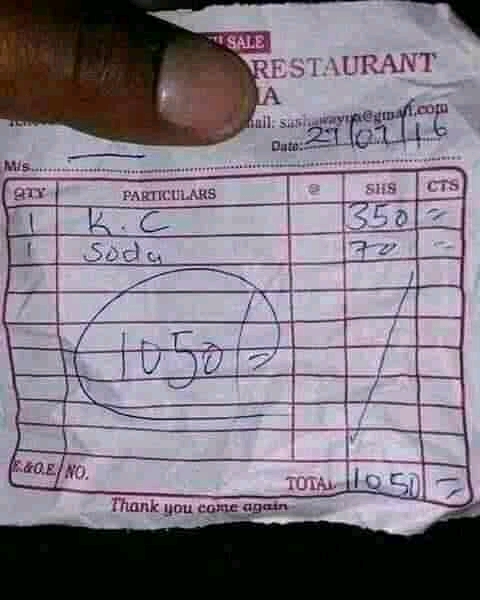 SALE
RESTAURANT
IA
ail: sashawayua@gmail.com
Date: 27/07/16
M/s
QTY PARTICULARS @ SHS CTS
1 K.C 350 =
1 Soda 70 =
1050/=
E.&O.E. NO. TOTAL 1050 =
Thank you come again